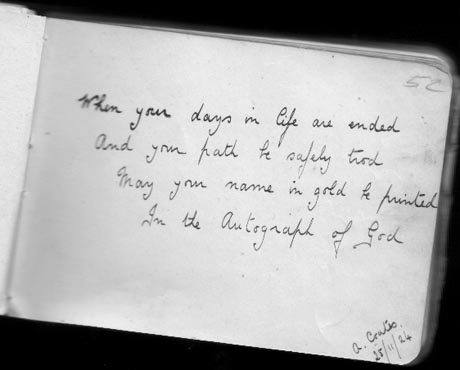 5C
When your days in life are ended
And your path be safely trod
May your name in gold be printed
In the Autograph of God
A. Coates.
25/11/24